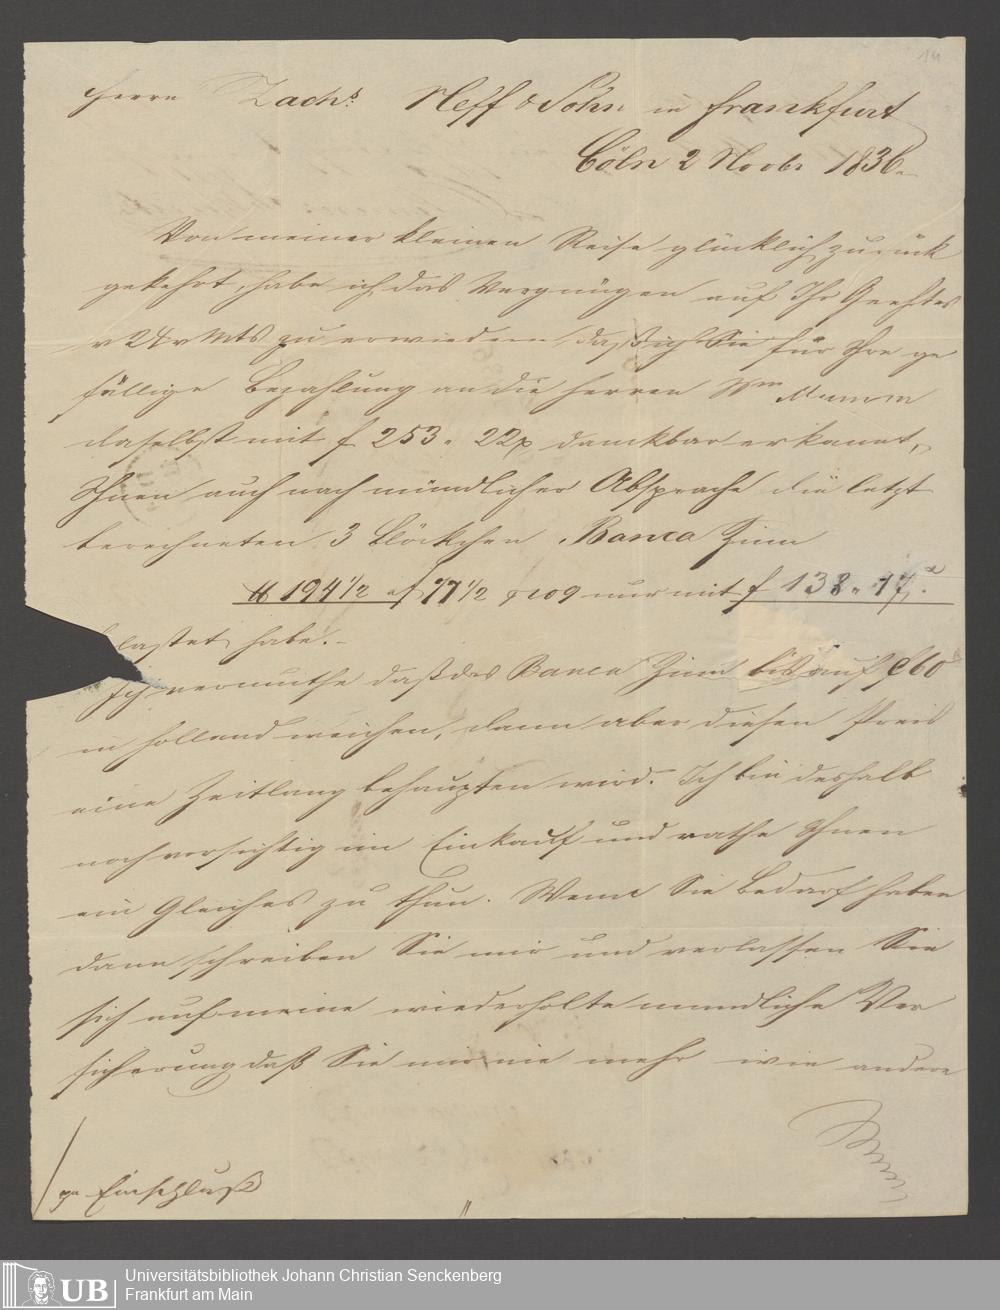 14
Herrn Zachs. Neff & Sohn in Frankfurt
Cöln 2 Novbr 1836.
Von meiner kleinen Reise glücklich zurück
gekehrt, habe ich das Vergnügen auf Ihr Geehrtes
v 28 v Mts zu erwiedern, daß ich Sie für Ihre ge
fällige Bezahlung an die Herren Wm Mumm
daselbst mit f 253 " 22 x dankbar erkannt,
Ihnen auch nach mündlicher Absprache die letzt
berechneten 3 Blöckchen Banca Zinn
℔ 194 1/2 af 77 1/2 % 109 nur mit f 138 " 17 x.
lastet habe.-
Ich vermuthe daß das Banca Zinn bis auf f 60
in Holland weichen, dann aber diesen Preis
eine Zeitlang behaupten wird. Ich bin deshalb
noch vorsichtig im Einkauf und rathe Ihnen
ein Gleiches zu thun. Wenn Sie Bedarf haben
dann schreiben Sie mir und verlassen Sie
sich auf meine wiederholte mundliche Ver
sicherung daß Sie mir nie mehr wie andere
Einschluß
UB
Universitätsbibliothek Johann Christian Senckenberg
Frankfurt am Main